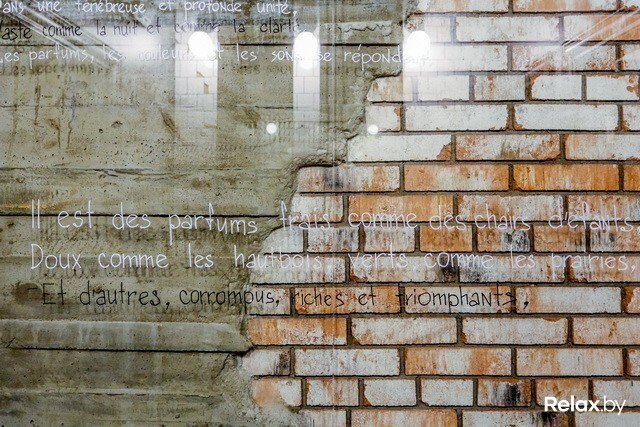 Dans une ténébreuse et profonde unité,
Vaste comme la nuit et comme la clarté
Les parfums, les couleurs et les sons se répondent
Il est des parfums frais comme des chairs d'enfants
Doux comme les hautbois verts comme les prairies,
Et d'autres, corrompus, riches et triomphants,
Relax.by